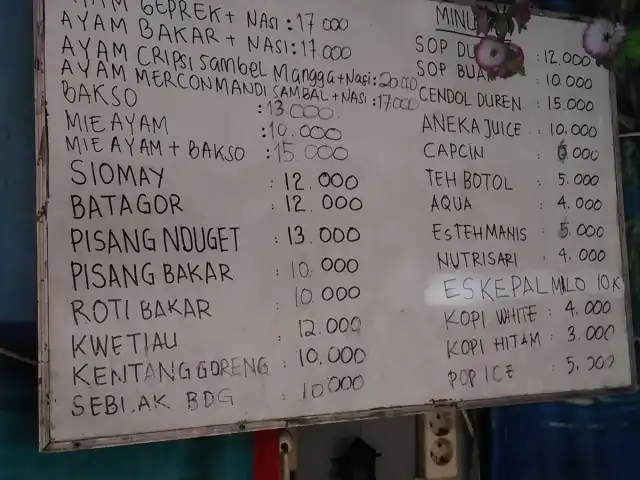 GEPREK + NASI : 17 000
AYAM BAKAR + NASI : 17.000
AYAM CRIPSI sambel Mangga + Nasi : 20000
AYAM MERCON MANDI SAMBAL + NASI : 17000
BAKSO : 13.000.
MIE AYAM : 10.000
MIE AYAM + BAKSO : 15 000
SIOMAY : 12.000
BATAGOR : 12.000
PISANG NDUGET : 13.000
PISANG BAKAR : 10.000
ROTI BAKAR : 10.000
KWETIAU : 12.000
KENTANG GORENG : 10.000
SEBI.AK. BDG : 10000
SOP : 12.000
SOP : 10.000
CENDOL DUREN : 15.000
ANEKA JUICE : 10.000
CAPCIN : 6.000
TEH BOTOL : 5.000
AQUA : 4.000
ESTEH MANIS : 5.000
NUTRISARI : 4.000
ESKEPAL MILO 10K
KOPI WHITE : 4.000
KOPI HITAM : 3.000
POP ICE : 5.000